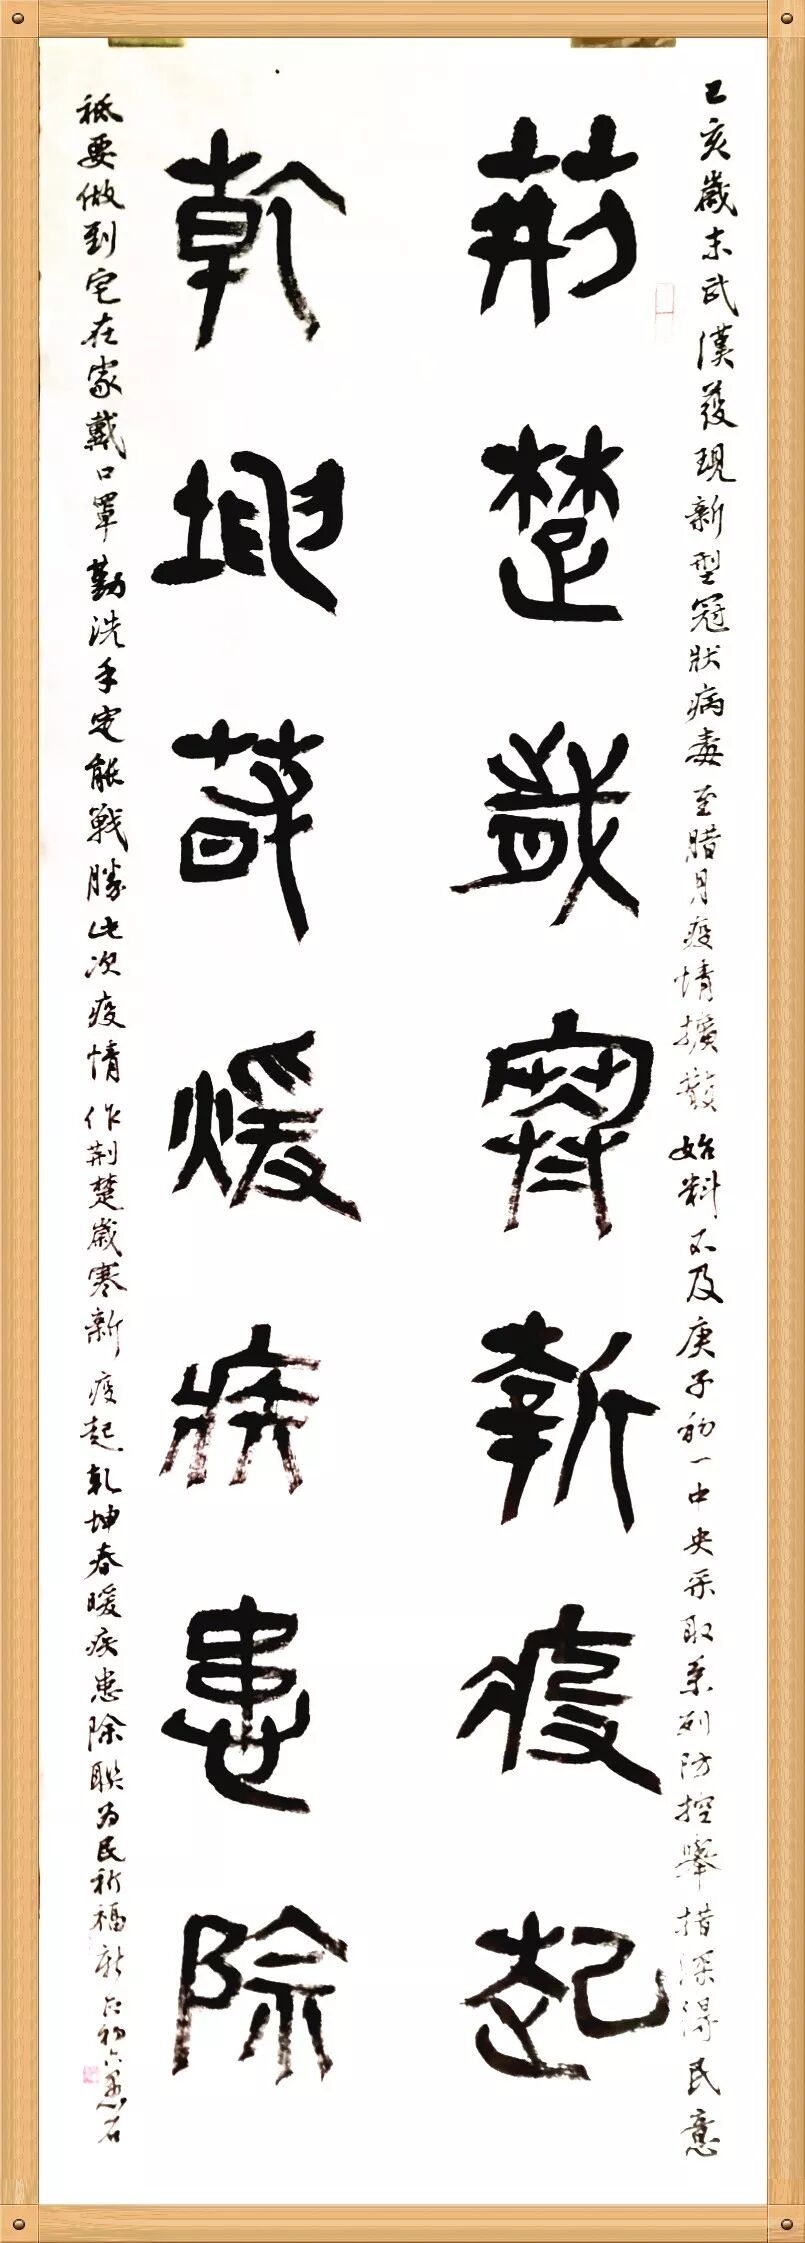 己亥歲末武漢發現新型冠狀病毒至腊月疫情擴散始料不及庚子初一中央采取系列防控舉措深得民意
荊楚歲寒新疫起
乾坤春煖疾患除
祗要做到宅在家戴口罩勤洗手定能戰勝此次疫情作荆楚歲寒新疫起乾坤春暖疾患除聯为民祈福初六愚石